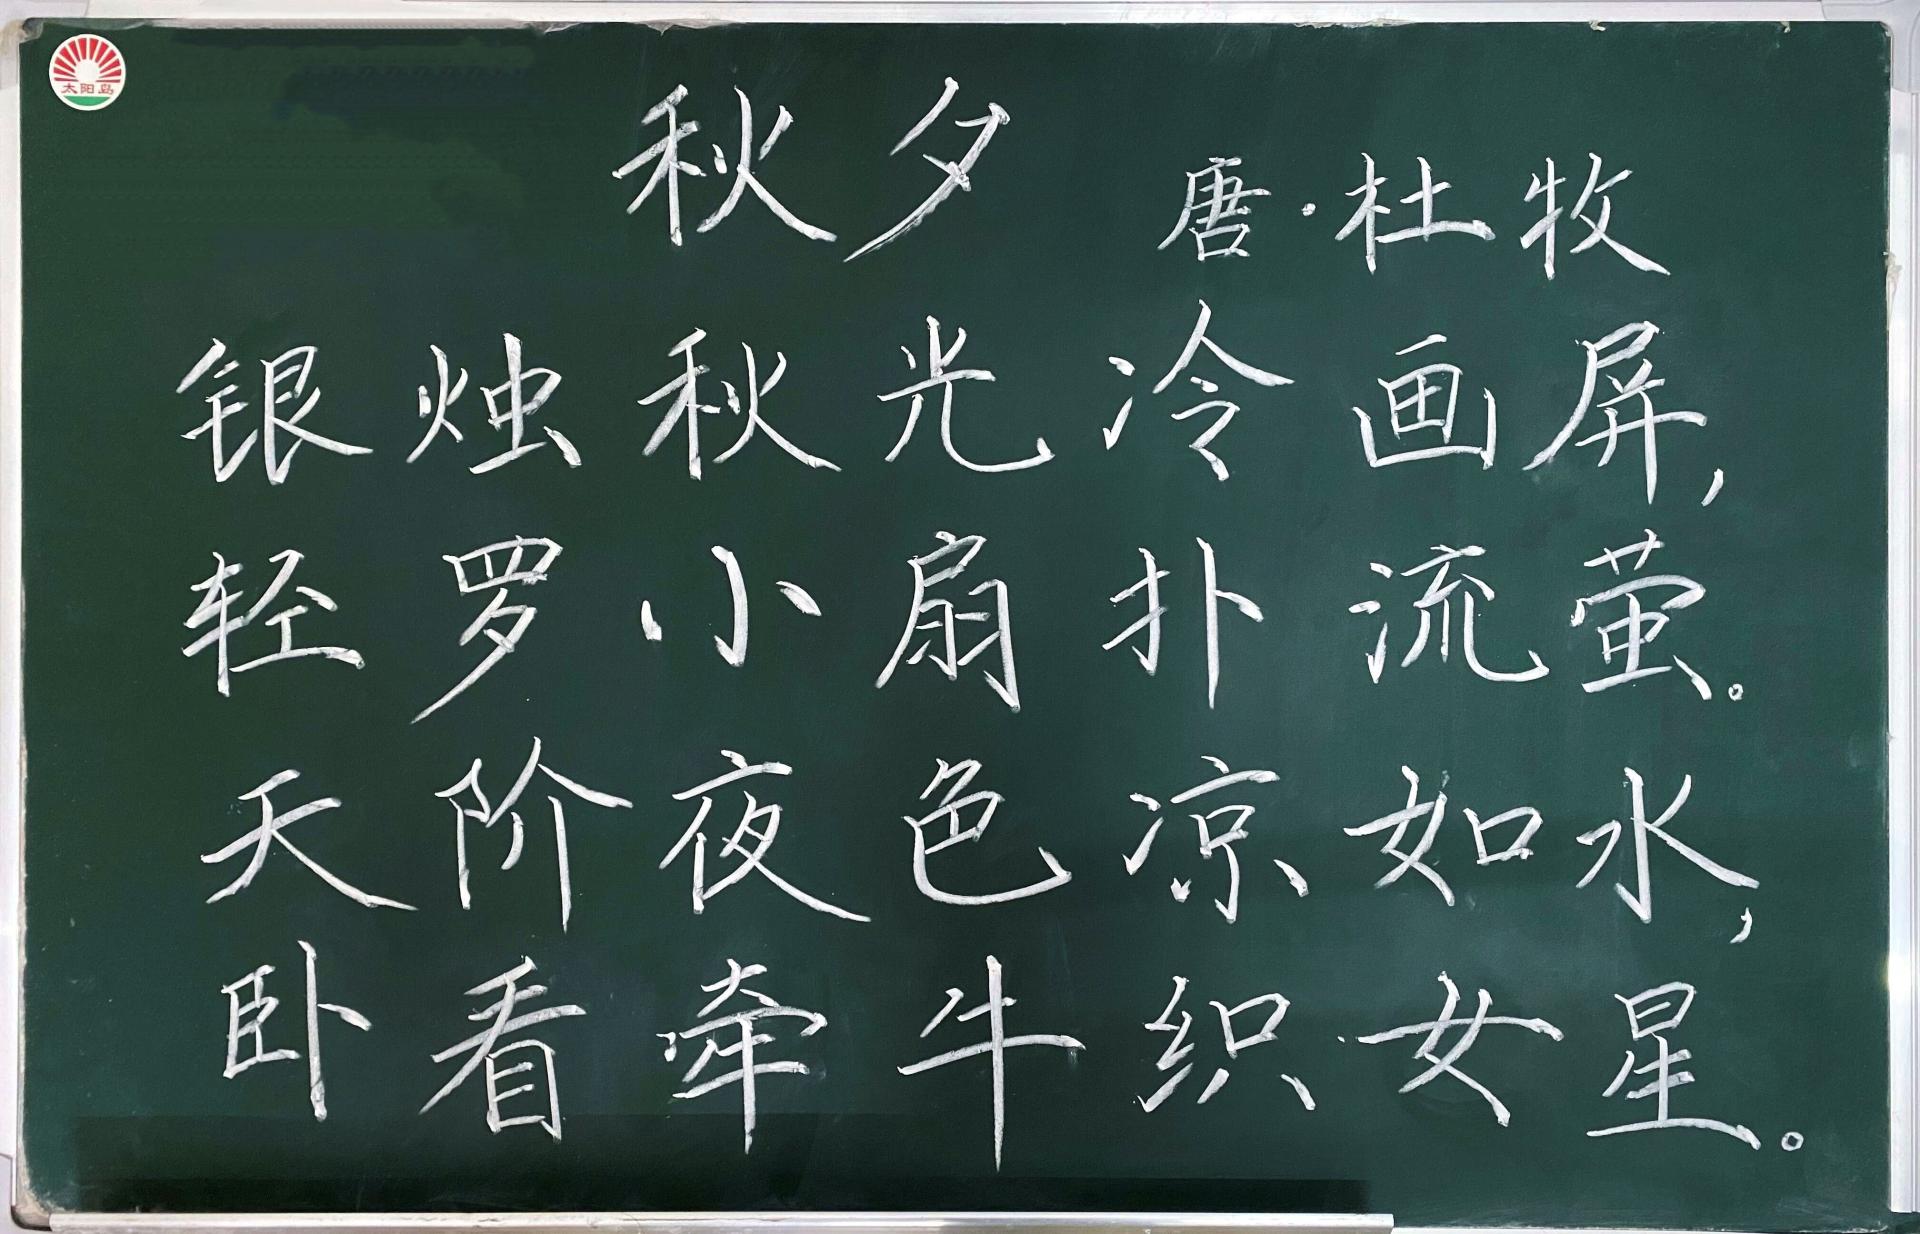 太阳岛
秋夕
唐·杜牧
银烛秋光冷画屏，
轻罗小扇扑流萤。
天阶夜色凉如水，
卧看牵牛织女星。